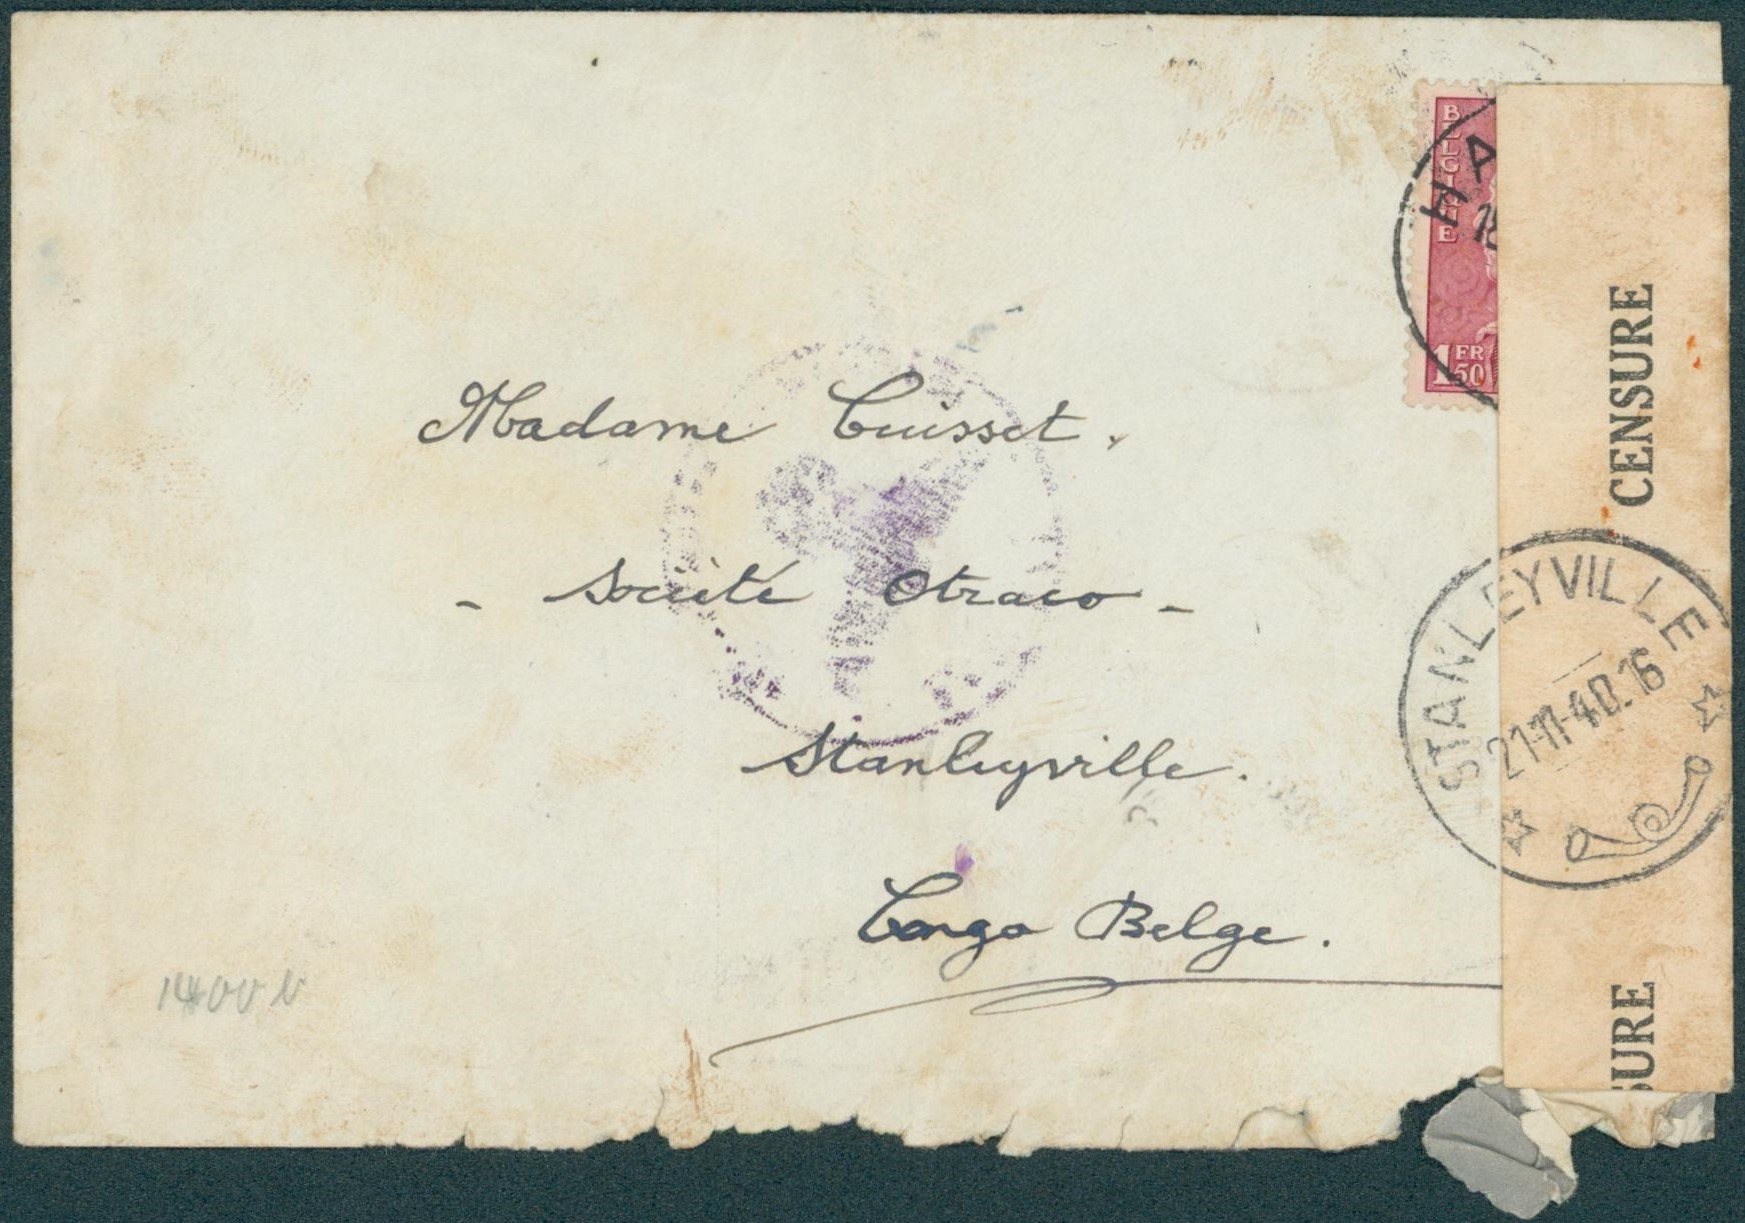 BELGIQUE
HA
1 FR 50
CENSURE
Madame Cuisset.
- Société Otraco -
STANLEYVILLE
21-11-40.16
Stanleyville.
Congo Belge.
SURE